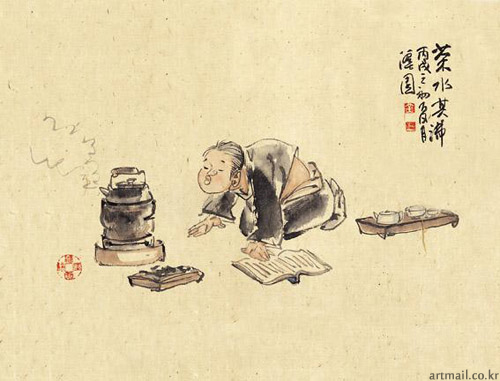 茶水其沸
丙戌之初夏月
園
artmail.co.kr